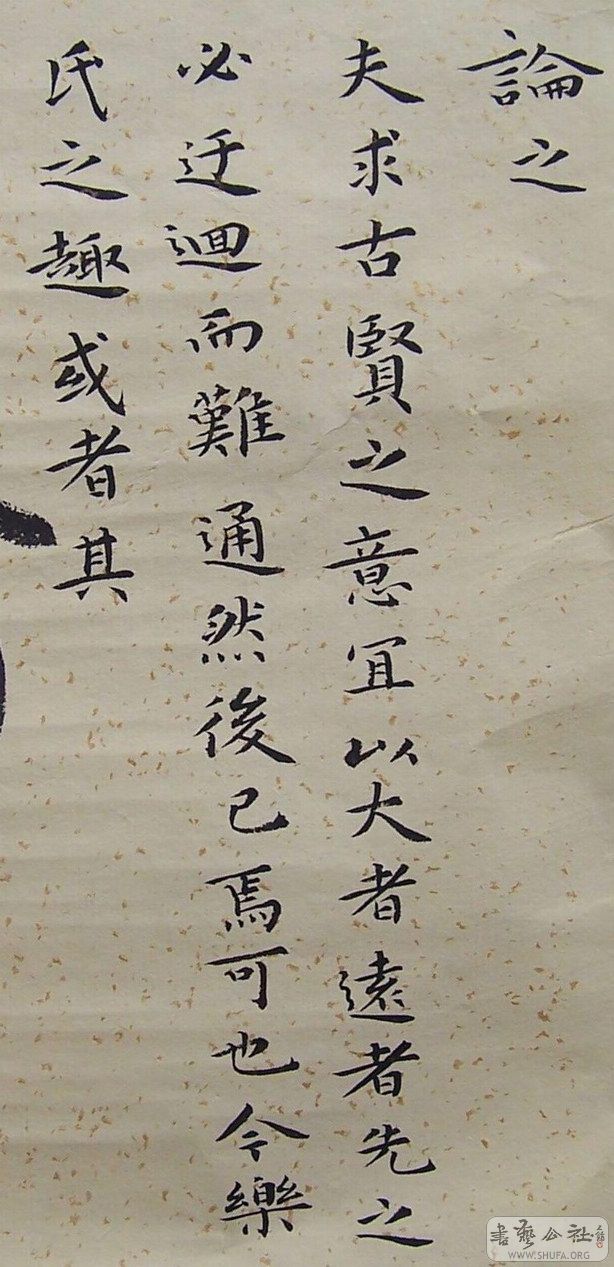 論之
夫求古賢之意宜以大者遠者先之
必迂迴而難通然後已焉可也今樂
氏之趣或者其
書藝公社
WWW.SHUFA.ORG